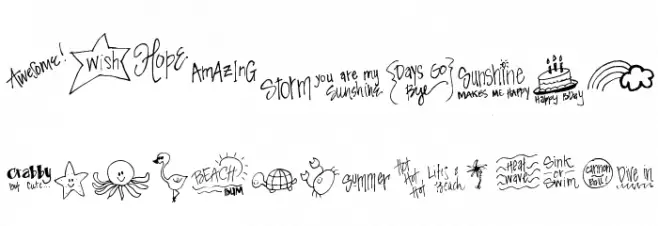 Awesome!
Wish
Hope
AmAzInG
Storm
you are my
Sunshine
{Days Go
Bye}
Sunshine
MAKES ME HAPPY
Happy BDay
Crabby
But Cute...
BEACH
BUM
Summer
Hot
Hot
Hot
Life's a
Beach
Heat
Wave
Sink
or
Swim
Cannon
Ball!
Dive in